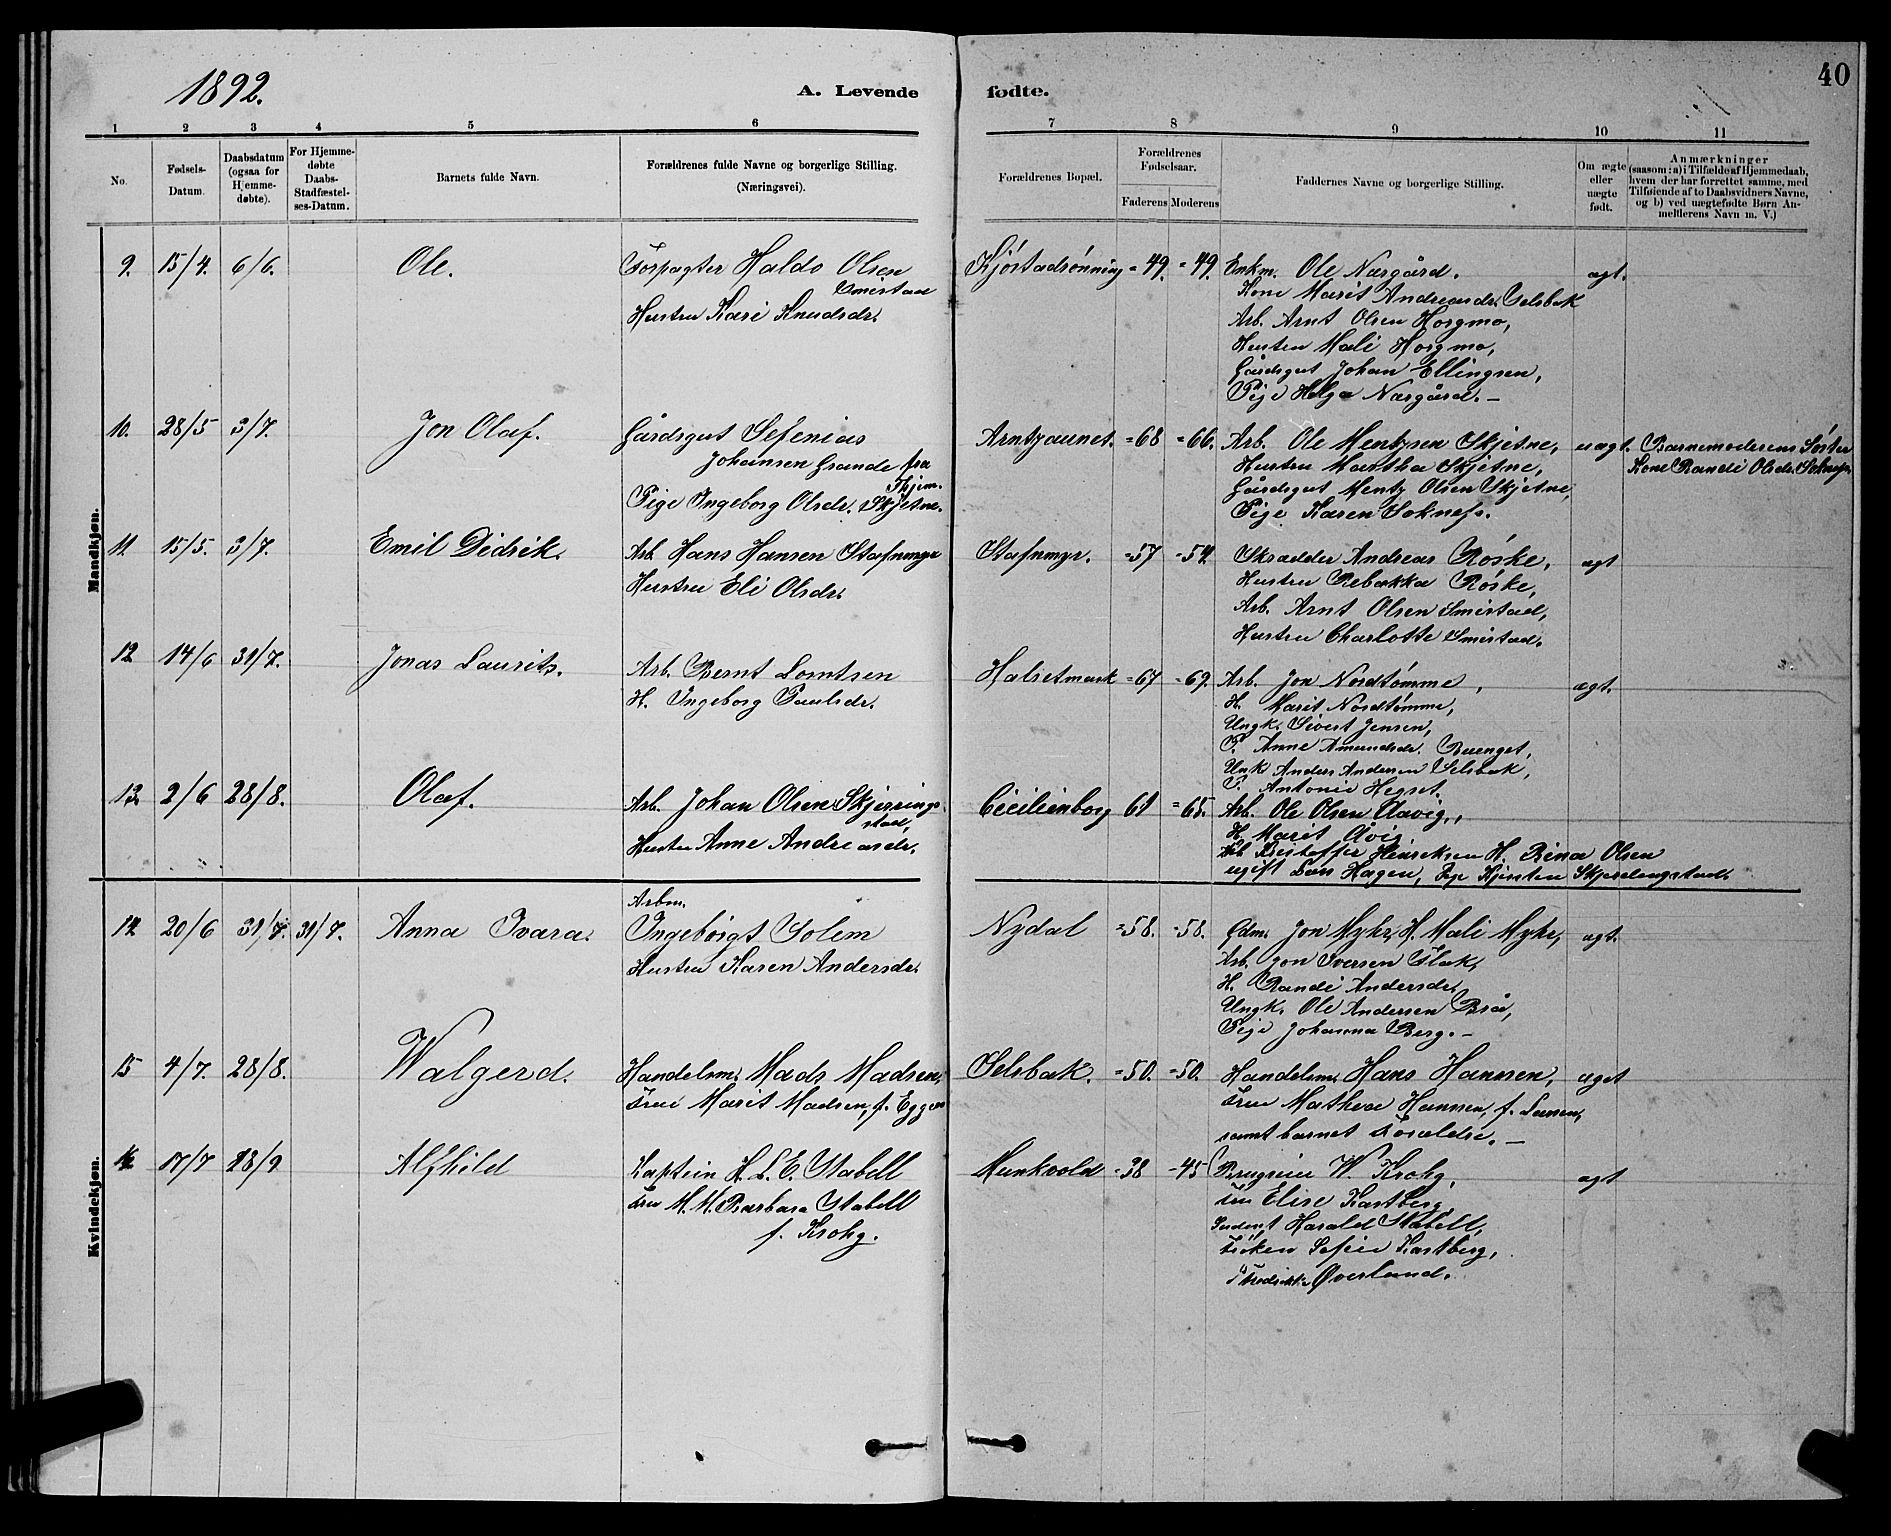 1892.
A. Levende
fødte.
40
1 2 3 4 5 6 7 8 9 10 11
No.
Fødsels-Datum.
Daabsdatum (ogsaa for Hjemme-døbte).
For Hjemme-døbte Daabs-Stadfæstel-ses-Datum.
Barnets fulde Navn.
Forældrenes fulde Navne og borgerlige Stilling.
(Næringsvei).
Forældrenes Bopæl.
Forældrenes Fødselsaar.
Faderens Moderens
Faddernes Navne og borgerlige Stilling.
Om ægte eller uægte født.
Anmærkninger
(saasom: a) i Tilfælde af Hjemmedaab,
hvem der har forrettet samme, med
Tilføiende af to Daabsvidners Navne,
og b) ved uægtefødte Børn An-
melderens Navn m. V.)
Mandkjøn.
9. 15/4. 6/6. Ole. Forpagter Haldo Olsen Kjøstadrønning =49. =49. Enkm. Ole Nærgård. ægt.
Smistad
Hustru Kari Knudsdr.
Kone Marit Andreasdr. Selsbak
Arb. Arnt Olsen Horgmo,
Hustru Mali Horgmo,
Gårdsgut Johan Ellingsen,
Pige Helga Nærgård. —
10. 28/5 3/7. Jon Olaf. Gårdsgut Sefenias Arntzaunet. =68 =66. Arb. Ole Mentzsen Skjetne, uægt. Barnemoderens Søster
Johansen Grande fra
Pige Ingeborg Olsdr. Skjetne.
Hustru Martha Skjetne, Kone Randi Olsdr.
Gårdsgut Mentz Olsen Skjetne,
Pige Karen Soknes.
11. 15/5. 3/7. Emil Didrik. Arb. Hans Hansen Stafnmyr Stafnmyr. =57 =54 Skrædder Andreas Røske, ægt
Hustru Eli Olsdr.
Hustru Rebekka Røske,
Arb. Arnt Olsen Smistad,
Hustru Charlotte Smistad.
12 14/6 31/7. Jonas Laurits. Arb. Bernt Lomtsen Halsetmark =67 =69. Arb. Jon Nordtømme, ægt.
H. Ingeborg Paulsdr.
H. Marit Nordtømme,
Ungk. Sivert Jensen,
P. Anne Amundsdr. Buenget,
Unk Anders Andersen Selsbak,
P. Antonie Hegset.
13. 2/6 28/8. Olaf. Arb. Johan Olsen Skjerrings- Cicilienborg 61 =65. Arb. Ole Olsen Aavig,
stad,
Hustru Anne Andreasdr.
H. Marit Åvig
Arb. Kristoffer Henriksen H. Rina Olsen
ugift Lars Hagen, Pige Kjersten Skjerdingstad.
Kvindekjøn.
14. 20/6 31/7. 31/7. Anna Ivara. Arbm.
Ingebrigt Solem Nydal =58. =58. Gdm. Jon Myhr, H. Mali Myhr, ægt.
Hustru Karen Andersdr.
Arb. Jon Iversen Flak,
H. Randi Andersdr.
Ungk. Ole Andersen Brå,
Pige Johanna Berg. —
15 4/7. 28/8. Walgerd. Handelsm. Mads Madsen, Selsbak. =50. =50. Handelsm. Hans Hannsen, æget
Frue Marit Madsen, f. Eggen
Frue Mathea Hansen, f. Larsen,
samt barnet Forældre. —
16 17/7 18/9 Alfhild Kaptein H. L. E. Stabell Munkvold =38 =45 W. Krohg, ægt
Fru M. M. Barbara Stabell
f. Krohg.
Fru Elise Kastberg,
Student Harald Stabell,
Frøken Sofie Kastberg,
" Fredrikke Øverland.